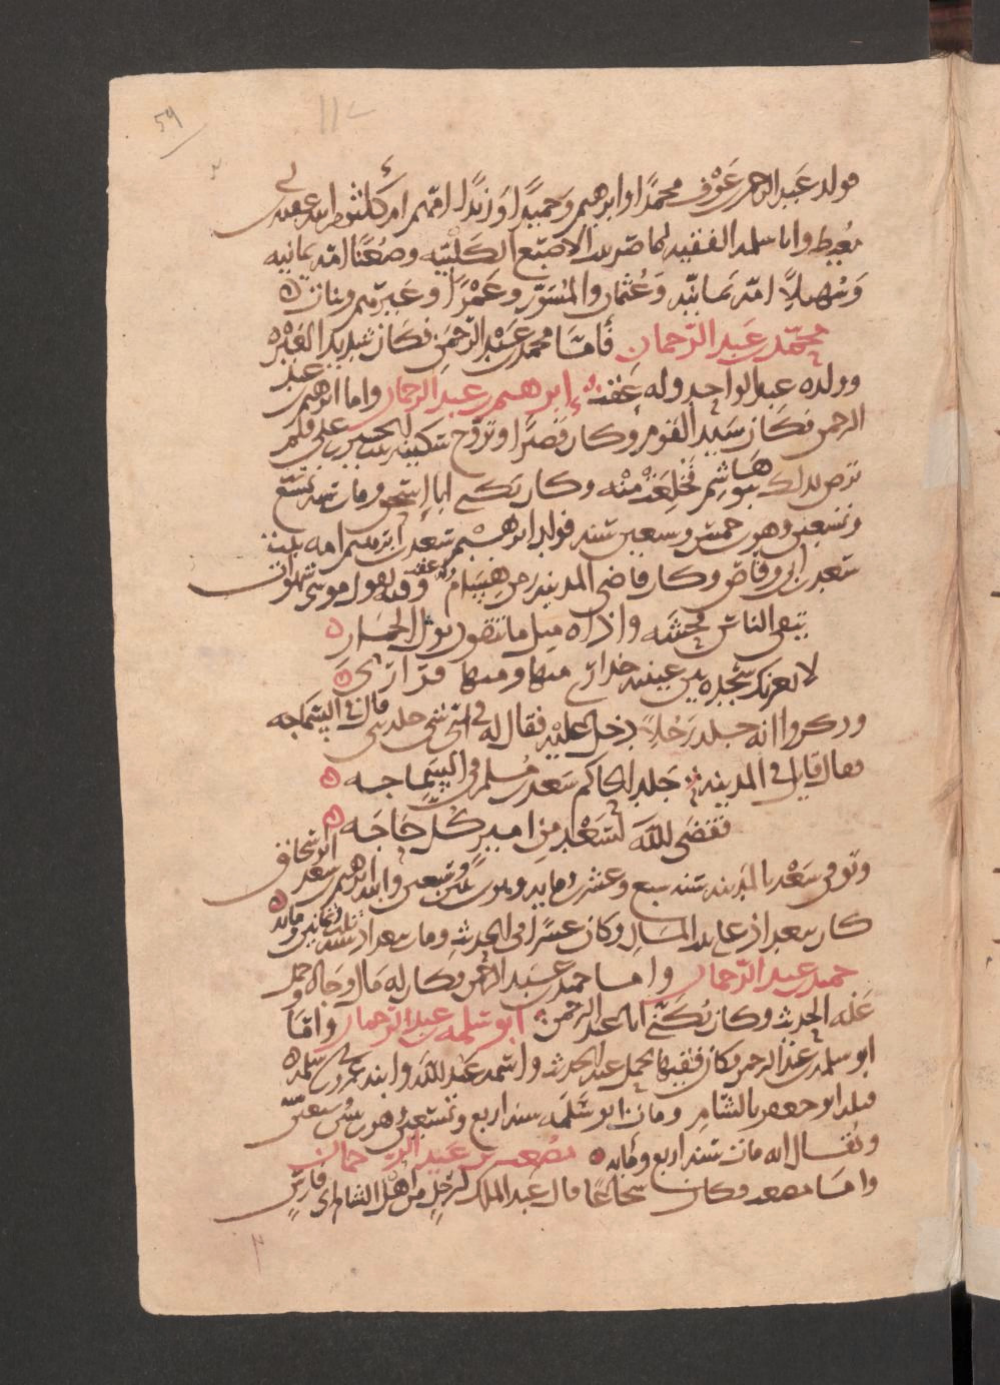 59
فولد عبد الرحمن عوف محمدا وابرهيم وحميدا وزيدا امهم ام كلثوم ابنه عقبه بن ابي
معيط وابا سلمه الفقيه امه تماضر بنت الاصبغ الكلبيه ومصعبا امه يمانيه
وسهيلا امه يمانيه وعثمان والمسور وعمرا وغيرهم وبنات
محمد بن عبد الرحمان فاما محمد بن عبد الرحمن فكان شديد الغيره
وولده عبد الواحد وله عقب ابرهيم بن عبد الرحمان واما ابرهيم بن عبد
الرحمن فكان سيد القوم وكان قصيرا وتزوج سكينه بنت الحسين بن علي فلم
ترض بذلك بنو هاشم فخلعت منه وكان يكنى ابا اسحق ومات سنه ست
وتسعين وهو بن خمس وسبعين سنه فولد ابرهيم سعد بن ابرهيم امه بنت
سعد بن ابي وقاص وكان قاضي المدينه زمن هشام وله عقب وفيه يقول موسى شهوات
يتقي الناس فحشه واذاه مثل ما يتقون بول الحمار
لا يغرنك سجده بين عينيه حذار منها ومنها فرار
وذكروا انه جلد رجلا دخل عليه فقال له في اي شي جلدتني قال في السماجه
فقال قايل في المدينه جلد الحاكم سعد بن سلم في السماجه
فقضى الله لسعد من امير كل حاجه
وتوفي سعد بالمدينه سنه سبع وعشرين ومايه وهو بن وسبعين وابنه ابرهيم بن سعد ابو اسحاق
كان ببغداد على بيت المال وكان عسرا في الحديث ومات ببغداد سنه ثلث وثمانين ومايه
حميد بن عبد الرحمان واما حميد بن عبد الرحمن فكان له مال وجاه وحمل
عنه الحديث وكان يكنى ابا عبد الرحمن ابو سلمه بن عبد الرحمان واما
ابو سلمه بن عبد الرحمن فكان فقيها يحمل عنه الحديث واسمه عبد الله وابنه عمر بن ابي سلمه
قتله ابو جعفر بالشام ومات ابو سلمه سنه اربع وتسعين وهو بن وسبعين سنه
ويقال انه مات سنه اربع ومايه مصعب بن عبد الرحمان
واما مصعب فكان شجاعا قال عبد الملك لرجل من اهل الشام اي فارس